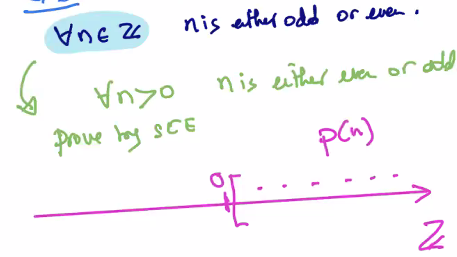 ∀n∈ℤ n is either odd or even.
∀n>0 n is either even or odd
prove by
P(n)
0
ℤ